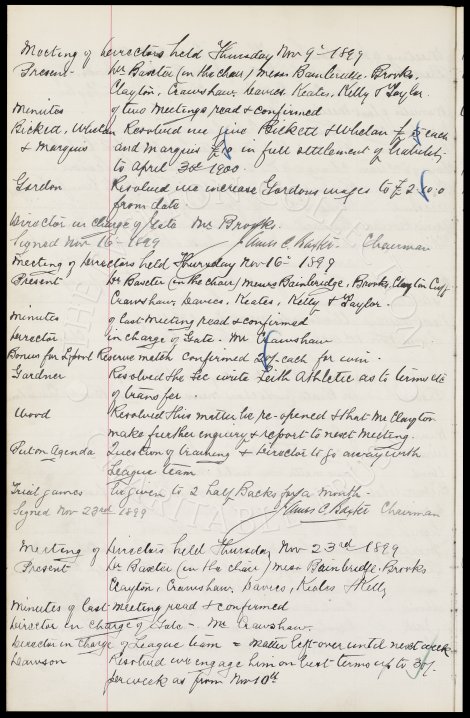 Meeting of Directors held Thursday Nov 9th 1899
Present Dr Baxter (in the chair) Messrs Bainbridge, Brooks,
Clayton, Crawshaw, Davies, Keates, Kelly & Taylor.
Minutes of two Meetings read & confirmed
Beckett, Whelan Resolved we give Beckett & Whelan £ each
& Marquis and Marquis £ in full settlement of liability
to April 30th 1900.
Gordon Resolved we increase Gordons wages to £2-10-0
from date
Director in charge of Gate Mr Brooks.
Signed Nov 16th 1899 James C. Baxter Chairman
Meeting of Directors held Thursday Nov 16th 1899
Present Dr Baxter (in the chair) Messrs Bainbridge, Brooks, Clayton, Cuff,
Crawshaw, Davies, Keates, Kelly & Taylor.
Minutes of last Meeting read & confirmed
Director in charge of Gate. Mr Crawshaw
Bonus for L'pool Reserve match Confirmed 20/- each for win.
Gardner Resolved the Sec write Leith Athletic as to terms etc
of transfer
Wood Resolved this matter be re-opened & that Mr Clayton
make further enquiry & report to next Meeting.
Put on Agenda Question of training & Director to go away with
League team
Trial games be given to 2 half Backs for a month.
Signed Nov 23rd 1899 James C. Baxter Chairman
Meeting of Directors held Thursday Nov 23rd 1899
Present Dr Baxter (in the chair) Messrs Bainbridge, Brooks
Clayton, Crawshaw, Davies, Keates & Kelly
Minutes of last meeting read & confirmed
Director in charge of Gate - Mr Crawshaw.
Director in charge of League team = matter left over until next week
Dawson Resolved we engage him on best terms up to 30/-
per week as from Nov 10th